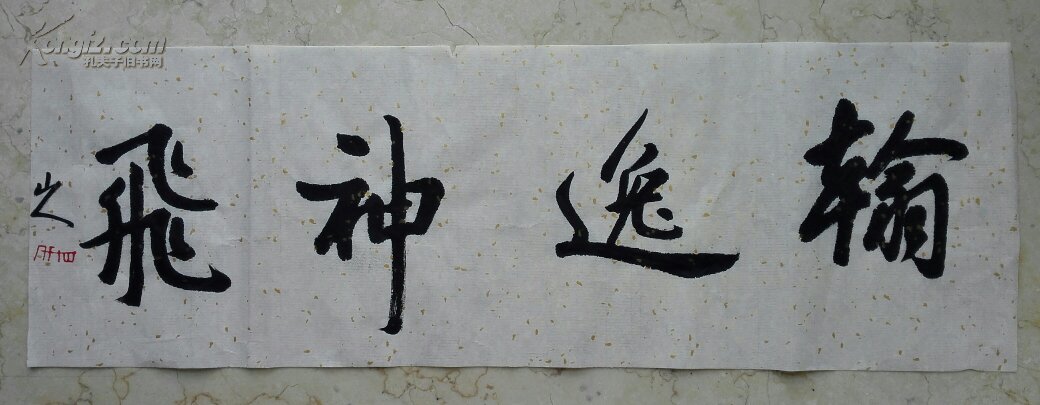 Kongfz.com
孔夫子旧书网
翰逸神飛